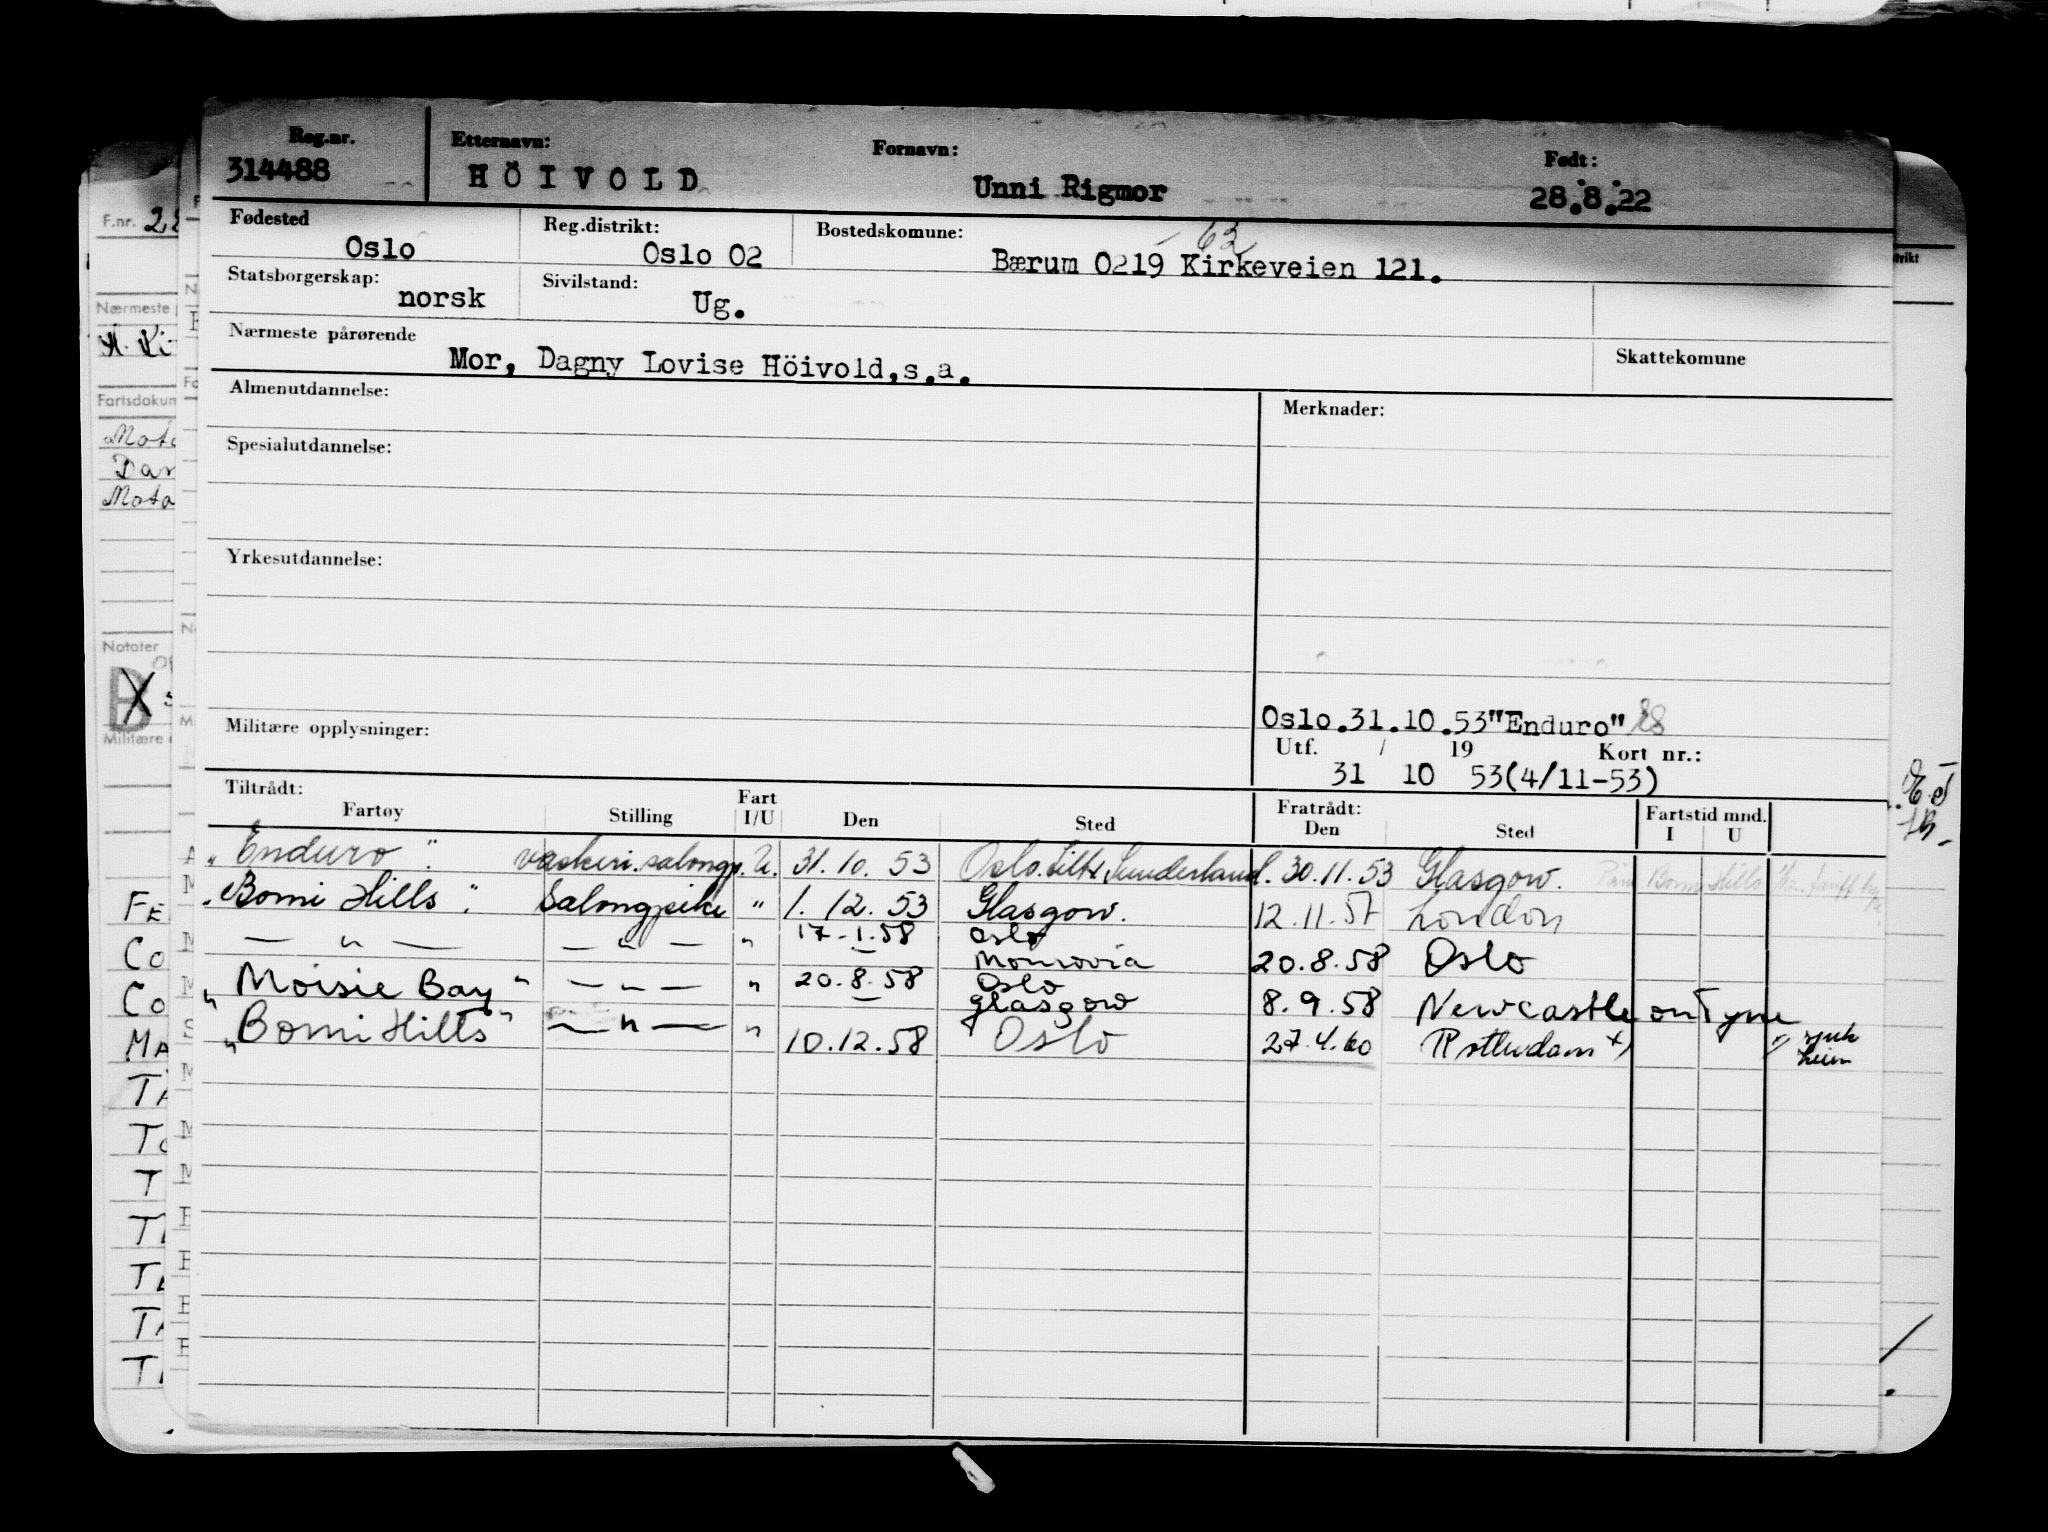 Reg.nr. Etternavn: Fornavn: Født:
314488 HÖIVOLD Unni Rigmor 28.8.22
Fødested Reg.distrikt: Bostedskomune: 63
Oslo Oslo 02 Bærum 0219 Kirkeveien 121.
Statsborgerskap: Sivilstand:
norsk Ug.
Nærmeste pårørende Skattekomune
Mor, Dagny Lovise Höivold,s.a.
Almenutdannelse: Merknader:
Spesialutdannelse:
Yrkesutdannelse:
Oslo.31.10.53"Enduro"
Militære opplysninger: Utf. / 19 Kort nr.:
31 10 53(4/11-53)
Tiltrådt: Fart Fratrådt: Fartstid mnd.
Fartøy Stilling I/U Den Sted Den Sted I U
"Enduro" vaskeri.salongp. U. 31.10.53 Oslo. Sunderland. 30.11.53 Glasgow.
"Bomi Hills" Salongpike " 1.12.53 Glasgow. 12.11.57 London
— " — — " — " 17-1.58 Oslo
Monrovia 20.8.58 Oslo
"Moisie Bay" — " — " 20.8.58 Oslo
Glasgow 8.9.58 Newcastle on Tyne
"Bomi Hills" — " — " 10.12.58 Oslo 27.4.60 Rotterdam x) x) sjuk
heim
F.nr.
Nærmeste
Notater
B
Militære
FE
CO
CO
MA
TA
TO
T